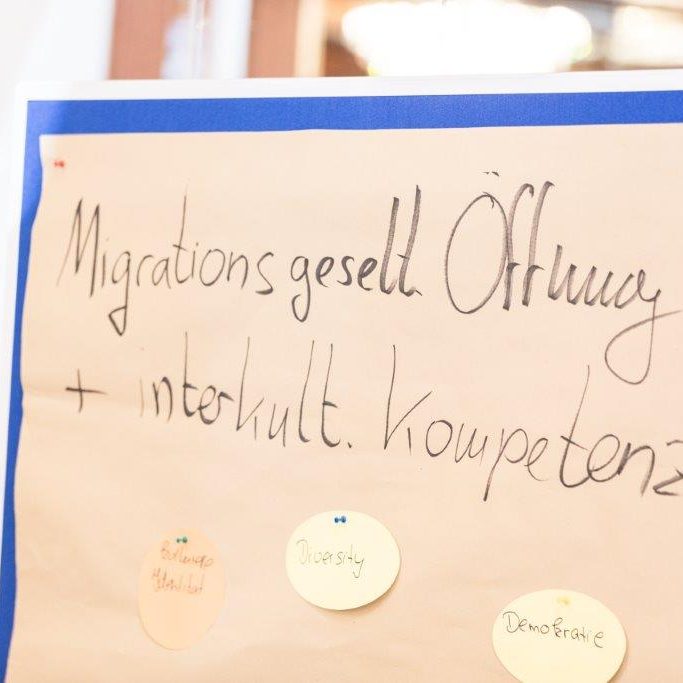 Migrationsgesell. Öffnung
+ interkult. Kompetenz
Diversity
Demokratie